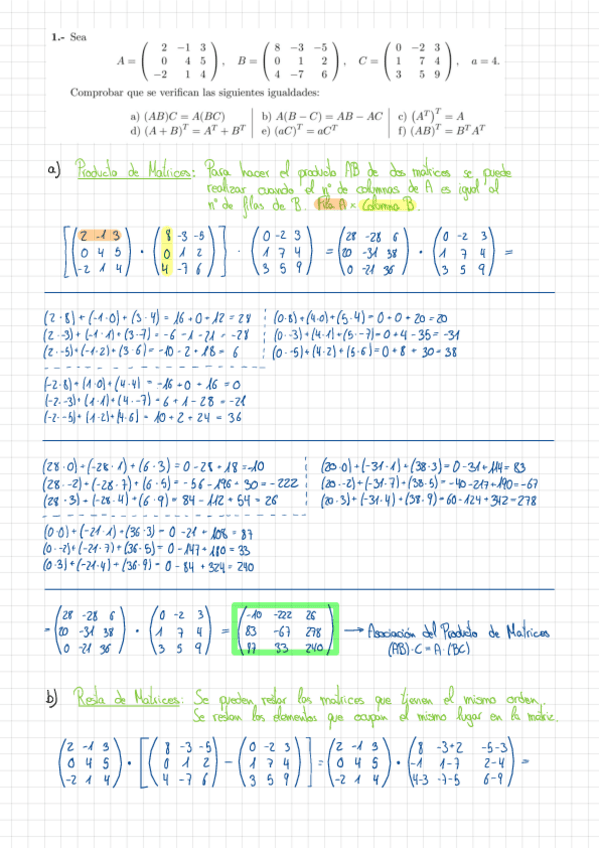 1.- Sea
A = ( 2 −1 3 ; 0 4 5 ; −2 1 4 ), B = ( 8 −3 −5 ; 0 1 2 ; 4 −7 6 ), C = ( 0 −2 3 ; 1 7 4 ; 3 5 9 ), a = 4.
Comprobar que se verifican las siguientes igualdades:
a) (AB)C = A(BC) | b) A(B − C) = AB − AC | c) (A^T)^T = A
d) (A + B)^T = A^T + B^T | e) (aC)^T = aC^T | f) (AB)^T = B^T A^T
a) Producto de Matrices: Para hacer el producto AB de dos matrices se puede
realizar cuando el nº de columnas de A es igual al
nº de filas de B. Fila A × Columna B.
[( 2 -1 3 ; 0 4 5 ; -2 1 4 ) · ( 8 -3 -5 ; 0 1 2 ; 4 -7 6 )] · ( 0 -2 3 ; 1 7 4 ; 3 5 9 ) = ( 28 -28 6 ; 20 -31 38 ; 0 -21 36 ) · ( 0 -2 3 ; 1 7 4 ; 3 5 9 ) =
(2·8)+(-1·0)+(3·4) = 16+0+12 = 28
(2·-3)+(-1·1)+(3·-7) = -6-1-21 = -28
(2·-5)+(-1·2)+(3·6) = -10-2+18 = 6
(0·8)+(4·0)+(5·4) = 0+0+20 = 20
(0·-3)+(4·1)+(5·-7) = 0+4-35 = -31
(0·-5)+(4·2)+(5·6) = 0+8+30 = 38
(-2·8)+(1·0)+(4·4) = -16+0+16 = 0
(-2·-3)+(1·1)+(4·-7) = 6+1-28 = -21
(-2·-5)+(1·2)+(4·6) = 10+2+24 = 36
(28·0)+(-28·1)+(6·3) = 0-28+18 = -10
(28·-2)+(-28·7)+(6·5) = -56-196+30 = -222
(28·3)+(-28·4)+(6·9) = 84-112+54 = 26
(20·0)+(-31·1)+(38·3) = 0-31+114 = 83
(20·-2)+(-31·7)+(38·5) = -40-217+190 = -67
(20·3)+(-31·4)+(38·9) = 60-124+342 = 278
(0·0)+(-21·1)+(36·3) = 0-21+108 = 87
(0·-2)+(-21·7)+(36·5) = 0-147+180 = 33
(0·3)+(-21·4)+(36·9) = 0-84+324 = 240
= ( 28 -28 6 ; 20 -31 38 ; 0 -21 36 ) · ( 0 -2 3 ; 1 7 4 ; 3 5 9 ) = ( -10 -222 26 ; 83 -67 278 ; 87 33 240 ) → Asociación del Producto de Matrices
(AB)·C = A·(BC)
b) Resta de Matrices: Se pueden restar las matrices que tienen el mismo orden.
Se restan los elementos que ocupan el mismo lugar en la matriz.
( 2 -1 3 ; 0 4 5 ; -2 1 4 ) · [( 8 -3 -5 ; 0 1 2 ; 4 -7 6 ) - ( 0 -2 3 ; 1 7 4 ; 3 5 9 )] = ( 2 -1 3 ; 0 4 5 ; -2 1 4 ) · ( 8 -3+2 -5-3 ; -1 1-7 2-4 ; 4-3 -7-5 6-9 ) =